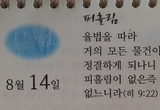 피흘림
율법을 따라
거의 모든 물건이
정결하게 되나니
피흘림이 없은즉
없느니라(히 9:22)
8월 14일